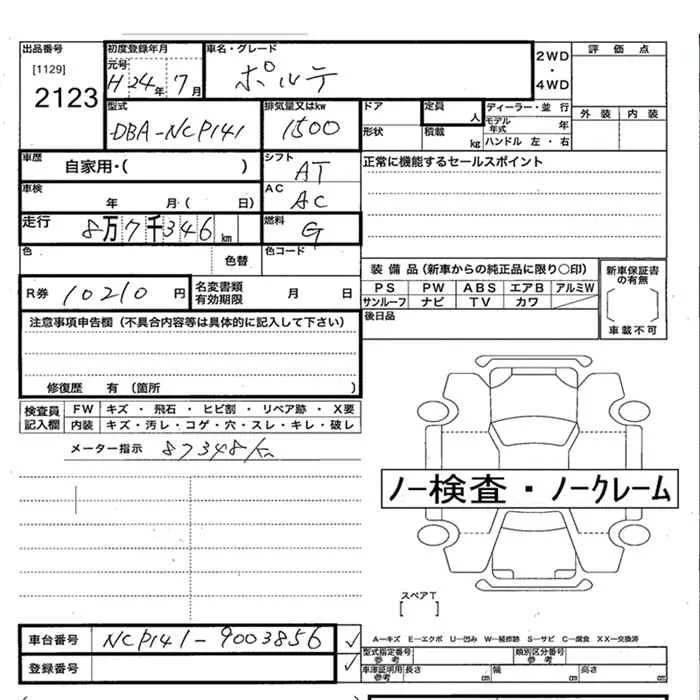 出品番号
[1129]
2123
初度登録年月
元号
H 24年 7月
車名・グレード
ポルテ
2WD
・
4WD
評価点
外装 内装
型式
DBA-NCP141
排気量又はkw
1500
ドア
形状
定員
人
積載
kg
ディーラー・並行
モデル年式 年
ハンドル 左・右
車歴
自家用・( )
シフト
AT
正常に機能するセールスポイント
車検
年 月( 日)
AC
AC
走行
8万7千346km
燃料
G
色
色替
色コード
R券 10210円
名変書類有効期限 月 日
装備品(新車からの純正品に限り〇印)
PS PW ABS エアB アルミW
サンルーフ ナビ TV カワ
新車保証書の有無
車載不可
後日品
注意事項申告欄(不具合内容等は具体的に記入して下さい)
修復歴 有(箇所 )
検査員記入欄
FW キズ・飛石・ヒビ割・リペア跡・X要
内装 キズ・汚レ・コゲ・穴・スレ・キレ・破レ
メーター指示 87348K
ノー検査・ノークレーム
スペアT
[ ]
A―キズ E―エクボ U―凹み W―補修跡 S―サビ C―腐食 XX―交換済
車台番号 NCP141-9003856 ✓
登録番号 ✓
型式指定番号参考
類別区分番号参考
車庫証明用参考 長さ cm 幅 cm 高さ cm